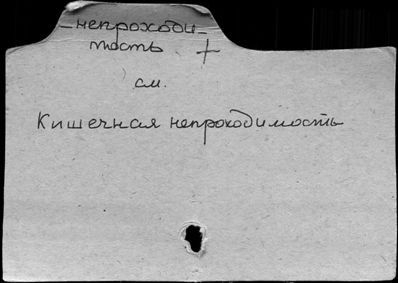 –непроходи–
мость +
см.
Кишечная непроходимость